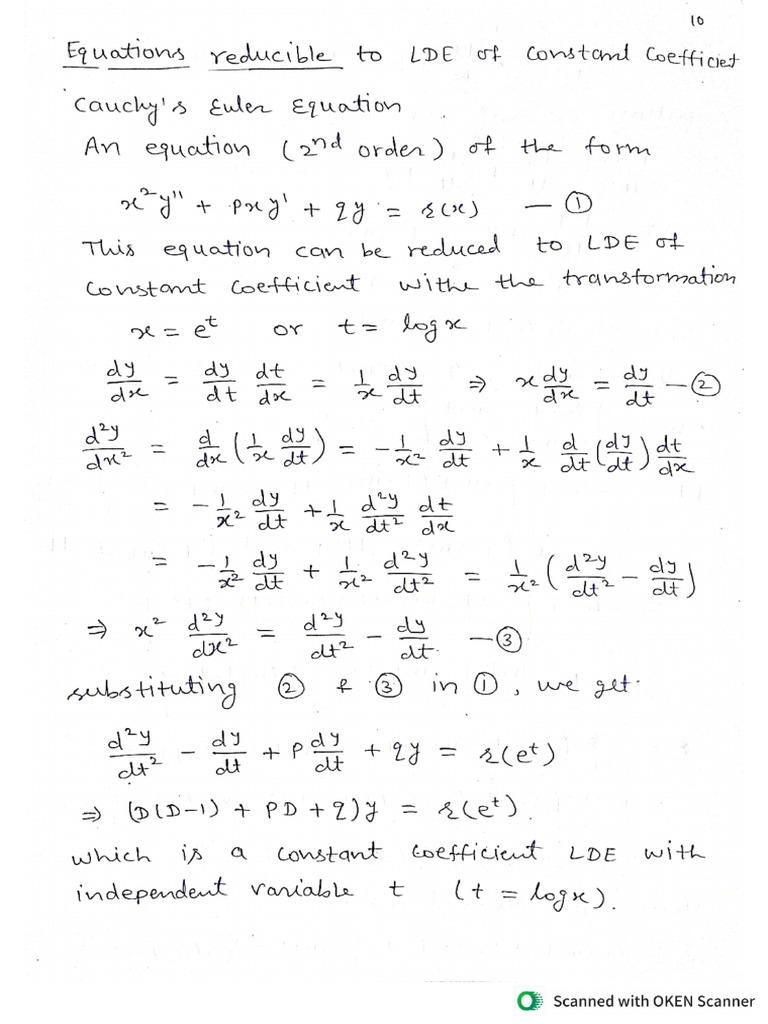 10
Equations reducible to LDE of Constant Coefficiet
Cauchy's Euler Equation
An equation (2nd order) of the form
x²y'' + pxy' + qy = r(x) — ①
This equation can be reduced to LDE of
Constant Coefficient withe the transformation
x = e^t or t = log x
dy/dx = dy/dt dt/dx = 1/x dy/dt ⇒ x dy/dx = dy/dt — ②
d²y/dx² = d/dx (1/x dy/dt) = -1/x² dy/dt + 1/x d/dt (dy/dt) dt/dx
= -1/x² dy/dt + 1/x d²y/dt² dt/dx
= -1/x² dy/dt + 1/x² d²y/dt² = 1/x² (d²y/dt² - dy/dt)
⇒ x² d²y/dx² = d²y/dt² - dy/dt. — ③
substituting ② & ③ in ①, we get.
d²y/dt² - dy/dt + p dy/dt + qy = r(e^t)
⇒ (D(D-1) + PD + q)y = r(e^t).
which is a constant coefficient LDE with
independent variable t (t = log x).
Scanned with OKEN Scanner